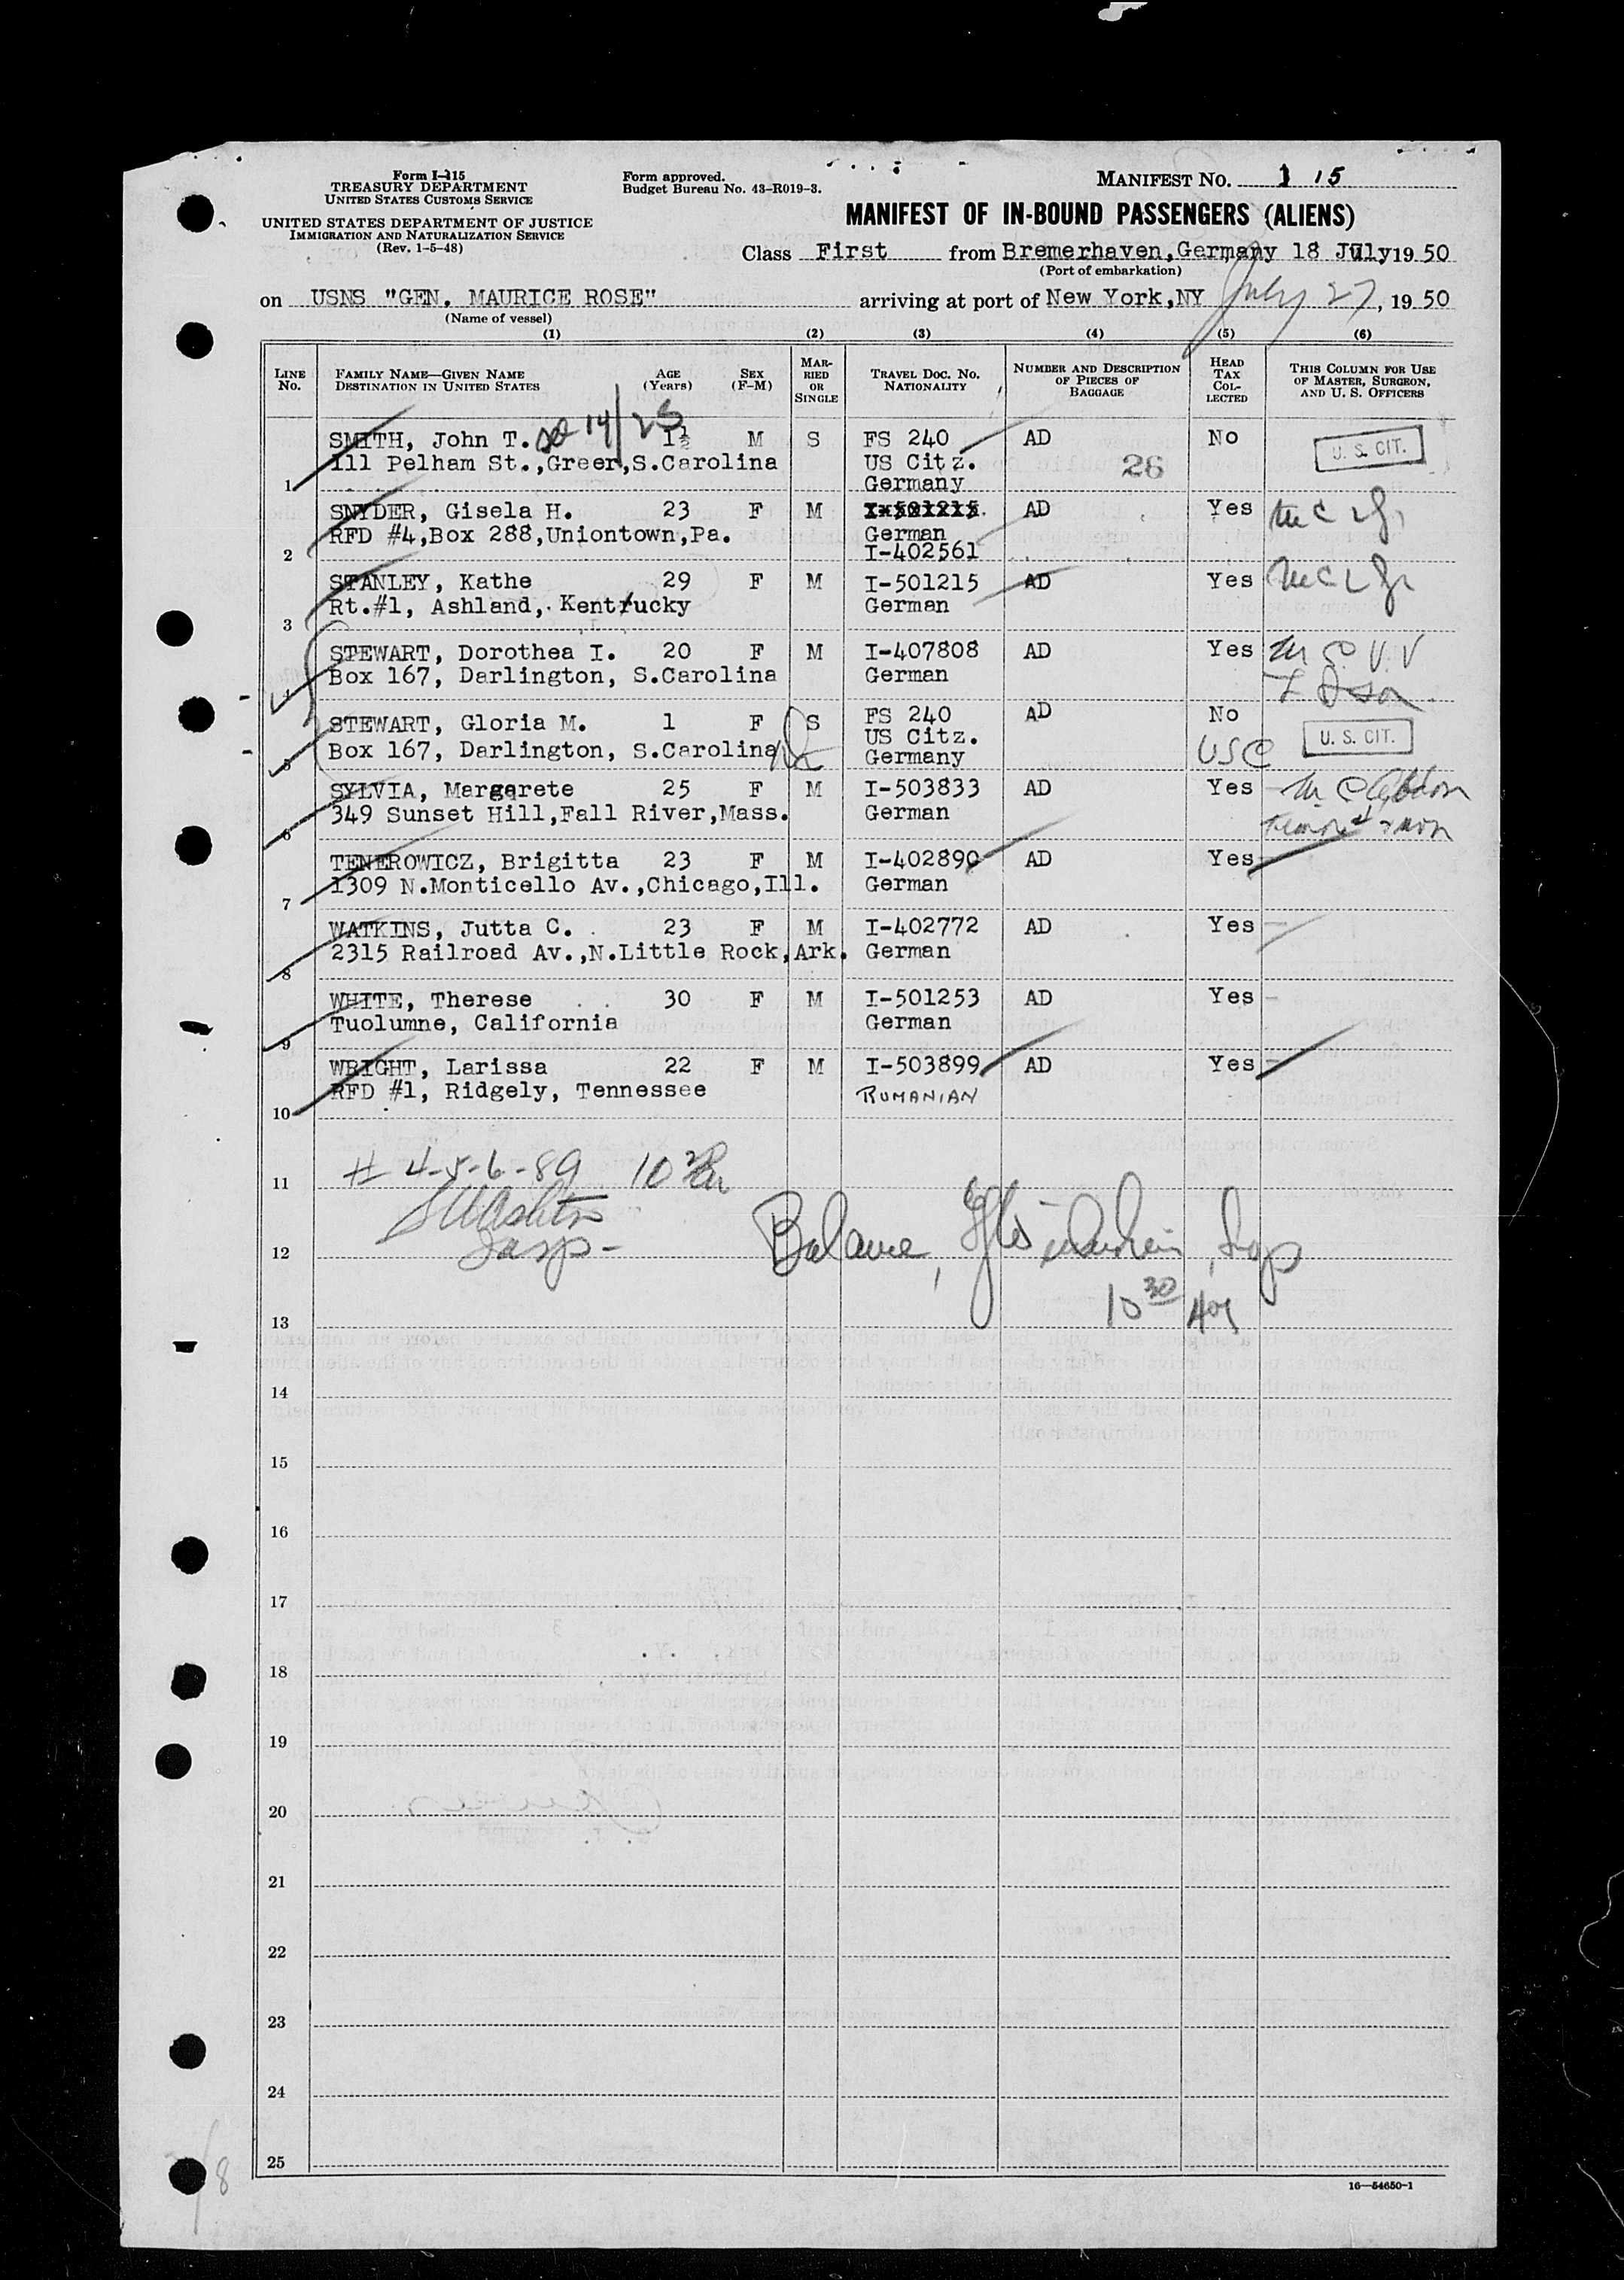 Form I-415
TREASURY DEPARTMENT
UNITED STATES CUSTOMS SERVICE
UNITED STATES DEPARTMENT OF JUSTICE
IMMIGRATION AND NATURALIZATION SERVICE
(Rev. 1-5-48)
Form approved.
Budget Bureau No. 43-R019-3.
MANIFEST NO. 15
MANIFEST OF IN-BOUND PASSENGERS (ALIENS)
Class First from Bremerhaven, Germany 18 July 1950
(Port of embarkation)
on USNS "GEN. MAURICE ROSE" arriving at port of New York, NY July 27, 1950
(Name of vessel)
(1) (2) (3) (4) (5) (6)
LINE NO.
FAMILY NAME—GIVEN NAME
DESTINATION IN UNITED STATES
AGE (YEARS)
SEX (F-M)
MARRIED OR SINGLE
TRAVEL DOC. NO.
NATIONALITY
NUMBER AND DESCRIPTION OF PIECES OF BAGGAGE
HEAD TAX COLLECTED
THIS COLUMN FOR USE OF MASTER, SURGEON, AND U. S. OFFICERS
SMITH, John T. 14/25 1½ M S FS 240 AD No U. S. CIT.
111 Pelham St., Greer, S.Carolina US Citz. 26
1 Germany
SNYDER, Gisela H. 23 F M I-501215 AD Yes
RFD #4, Box 288, Uniontown, Pa. German
2 I-402561
STANLEY, Kathe 29 F M I-501215 AD Yes
Rt.#1, Ashland, Kentucky German
3
STEWART, Dorothea I. 20 F M I-407808 AD Yes
Box 167, Darlington, S.Carolina German
4
STEWART, Gloria M. 1 F S FS 240 AD No
Box 167, Darlington, S.Carolina US Citz. USC U. S. CIT.
5 Germany
SYLVIA, Margarete 25 F M I-503833 AD Yes
349 Sunset Hill, Fall River, Mass. German
6
TENEROWICZ, Brigitta 23 F M I-402890 AD Yes
1309 N.Monticello Av., Chicago, Ill. German
7
WATKINS, Jutta C. 23 F M I-402772 AD Yes
2315 Railroad Av., N.Little Rock, Ark. German
8
WHITE, Therese 30 F M I-501253 AD Yes
Tuolumne, California German
9
WRIGHT, Larissa 22 F M I-503899 AD Yes
RFD #1, Ridgely, Tennessee RUMANIAN
10
# 4-5-6-89 10
11
Insp-
Balance, Insp
12
10 30
13
14
15
16
17
18
19
20
21
22
23
24
25
16—54650-1
8